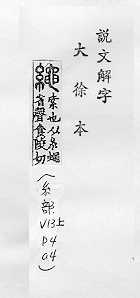 説文解字
大徐本
繩 索也从糸蠅
省聲食陵切
(糸部
V13上
P4
a4)